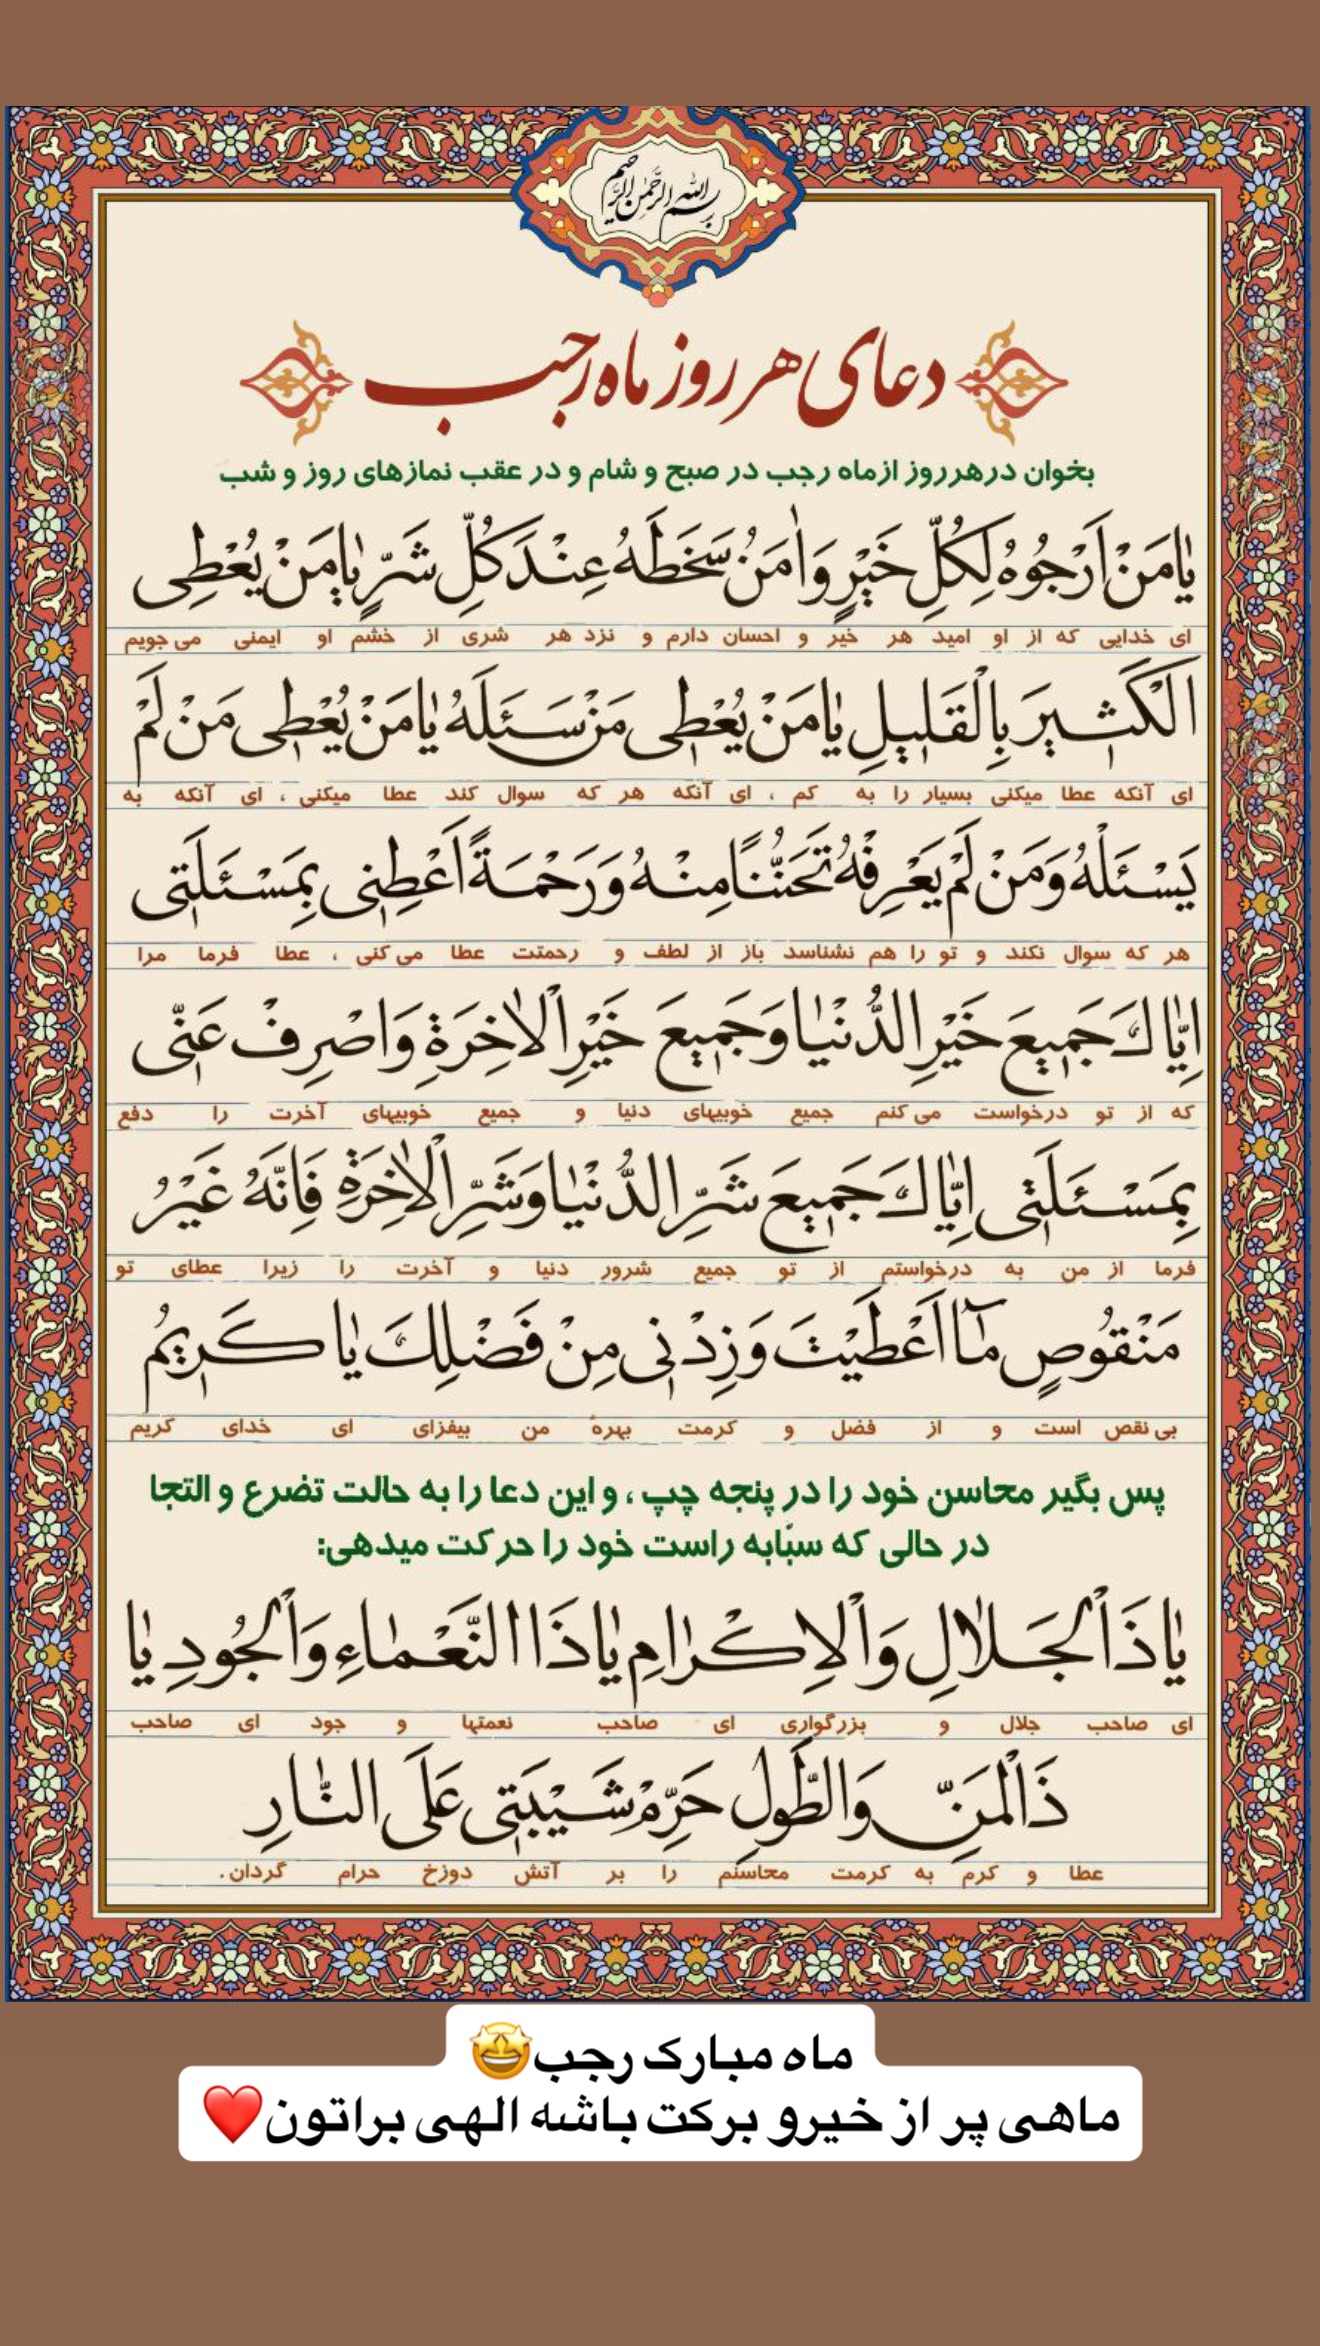 بسم الله الرحمن الرحیم
دعای هر روز ماه رجب
بخوان در هر روز از ماه رجب در صبح و شام و در عقب نمازهای روز و شب
یٰا مَنْ اَرْجُوهُ لِکُلِّ خَیْرٍ وَاٰمَنُ سَخَطَهُ عِنْدَ کُلِّ شَرٍّ یٰا مَنْ یُعْطِی
ای خدایی که از او امید هر خیر و احسان دارم و نزد هر شری از خشم او ایمنی می جویم
الْکَثٖیرَ بِالْقَلٖیلِ یٰا مَنْ یُعْطٖی مَنْ سَئَلَهُ یٰا مَنْ یُعْطٖی مَنْ لَمْ
ای آنکه عطا میکنی بسیار را به کم ، ای آنکه هر که سوال کند عطا میکنی ، ای آنکه به
یَسْئَلْهُ وَمَنْ لَمْ یَعْرِفْهُ تَحَنُّنًا مِنْهُ وَرَحْمَةً اَعْطِنٖی بِمَسْئَلَتٖی
هر که سوال نکند و تو را هم نشناسد باز از لطف و رحمتت عطا می کنی ، عطا فرما مرا
اِیّٰاکَ جَمٖیعَ خَیْرِ الدُّنْیٰا وَجَمٖیعَ خَیْرِ الْاٰخِرَةِ وَاصْرِفْ عَنّٖی
که از تو درخواست می کنم جمیع خوبیهای دنیا و جمیع خوبیهای آخرت را دفع
بِمَسْئَلَتٖی اِیّٰاکَ جَمٖیعَ شَرِّ الدُّنْیٰا وَشَرِّ الْاٰخِرَةِ فَاِنَّهُ غَیْرُ
فرما از من به درخواستم از تو جمیع شرور دنیا و آخرت را زیرا عطای تو
مَنْقُوصٍ مٰا اَعْطَیْتَ وَزِدْنٖی مِنْ فَضْلِکَ یٰا کَرٖیمُ
بی نقص است و از فضل و کرمت بهرهٔ من بیفزای ای خدای کریم
پس بگیر محاسن خود را در پنجه چپ ، و این دعا را به حالت تضرع و التجا
در حالی که سبّابه راست خود را حرکت میدهی:
یٰا ذَا الْجَلاٰلِ وَالْاِکْرٰامِ یٰا ذَا النَّعْمٰاءِ وَالْجُودِ یٰا
ای صاحب جلال و بزرگواری ای صاحب نعمتها و جود ای صاحب
ذَا الْمَنِّ وَالطَّولِ حَرِّمْ شَیْبَتٖی عَلَی النّٰارِ
عطا و کرم به کرمت محاسنم را بر آتش دوزخ حرام گردان.
ماه مبارک رجب🤩
ماهی پر از خیرو برکت باشه الهی براتون❤️